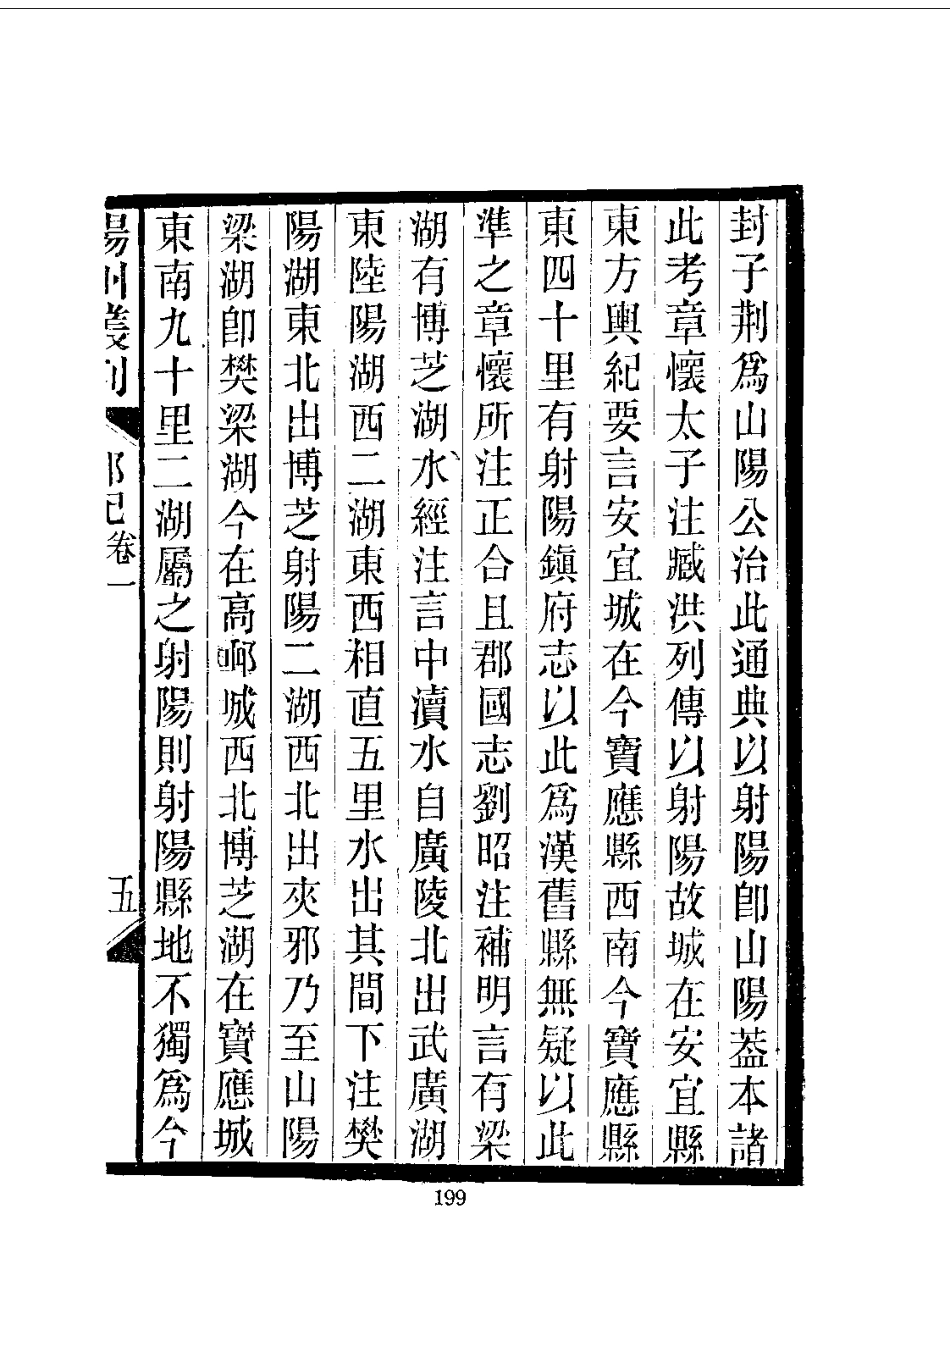 封子荆爲山陽公治此通典以射陽卽山陽葢本諸
此考章懷太子注臧洪列傳以射陽故城在安宜縣
東方輿紀要言安宜城在今寶應縣西南今寶應縣
東四十里有射陽鎭府志以此爲漢舊縣無疑以此
準之章懷所注正合且郡國志劉昭注補明言有梁
湖有博芝湖水經注言中瀆水自廣陵北出武廣湖
東陸陽湖西二湖東西相直五里水出其間下注樊
陽湖東北出博芝射陽二湖西北出夾邪乃至山陽
梁湖卽樊梁湖今在高郵城西北博芝湖在寶應城
東南九十里二湖屬之射陽則射陽縣地不獨爲今
揚州叢刊
邗記卷一
五
199